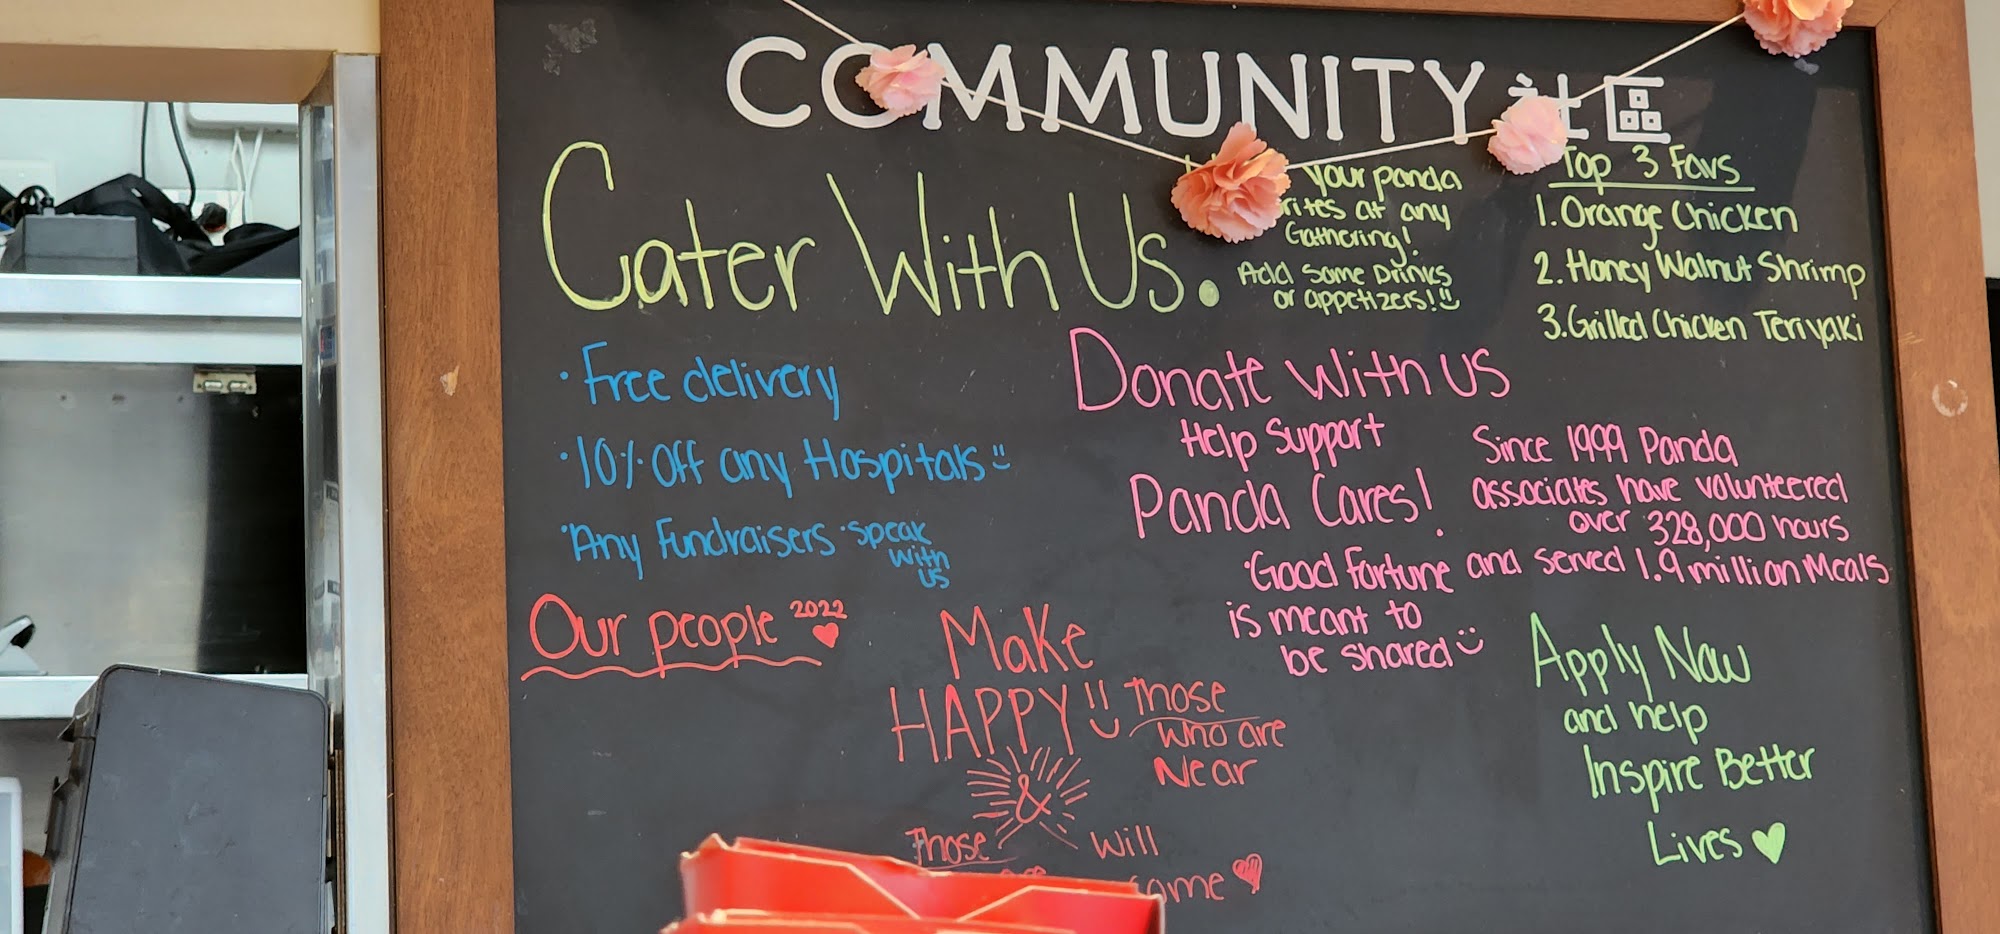 COMMUNITY 社區
Cater With Us.
Your panda
rites at any
Gathering!
Add Some Drinks
or appetizers!
Top 3 Favs
1. Orange Chicken
2. Honey Walnut Shrimp
3. Grilled Chicken Teriyaki
· Free delivery
· 10% off any Hospitals
· Any Fundraisers · speak
with
us
Donate With US
Help Support
Panda Cares!
Since 1999 Panda
associates have volunteered
over 328,000 hours
and served 1.9 million Meals
· Good Fortune
is meant to
be shared
Our people 2022
Make
HAPPY Those
who are
Near
&
Those Will
come
Apply Now
and help
Inspire Better
Lives